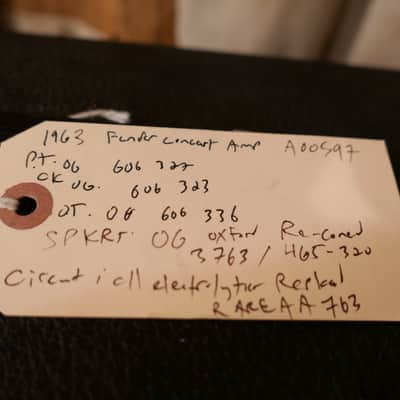 1963 Fender Concert Amp A00597
P.T. OG 606 322
CK OG. 606 323
OT. OG 606 336
SPKRS. OG Oxford Re-coned
3763 / 465-320
Circuit all electrolytics
RARE AA763